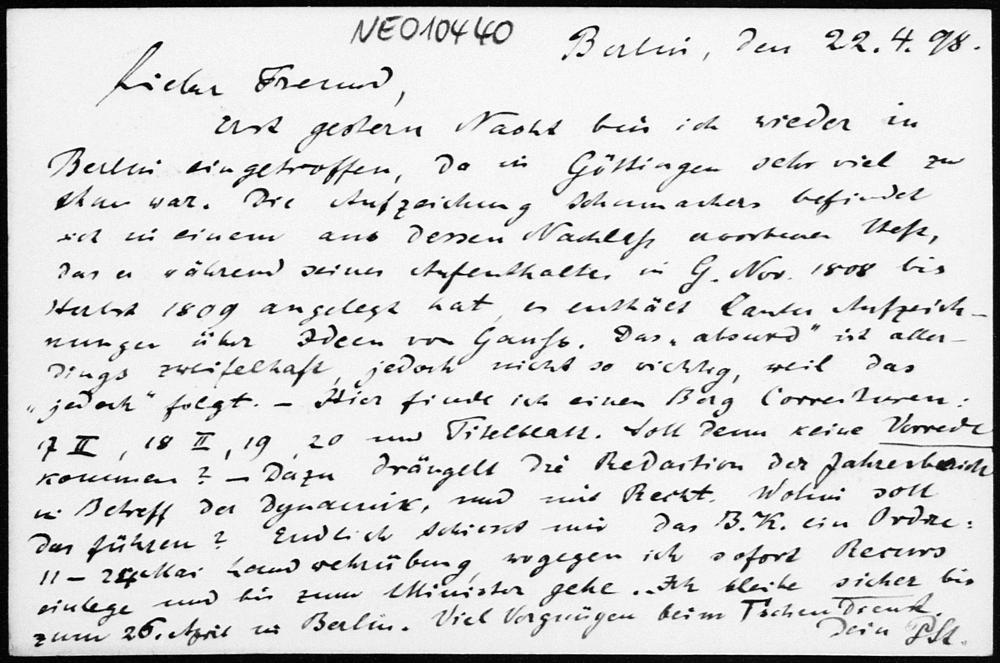 NEO10440
Berlin, den 22.4.98.
Lieber Freund,
erst gestern Nacht bin ich wieder in
Berlin eingetroffen, da in Göttingen sehr viel zu
thun war. Die Aufzeichnung Schumachers befindet
sich in einem aus dessen Nachlass erworbenen Heft,
das er während seines Aufenthaltes in G. Nov. 1808 bis
Herbst 1809 angelegt hat, es enthält lauter Aufzeich-
nungen über Ideen von Gauss. Das „absurd" ist aller-
dings zweifelhaft, jedoch nicht so wichtig, weil das
„jedoch" folgt. – Hier finde ich einen Berg Correcturen:
17 II, 18 II, 19, 20 und Titelblatt. Soll denn keine Vorrede
kommen? – Dazu drängelt die Redaction der Jahresberichte
in Betreff der Dynamik, und mit Recht. Wohin soll
das führen? Endlich schickt mir das B.K. ein Ordre:
11 – 24 Mai Landwehrübung, wogegen ich sofort Recurs
einlege und bis zum Minister gehe. Ich bleibe sicher bis
zum 26. April in Berlin. Viel Vergnügen beim
Dein PSt.